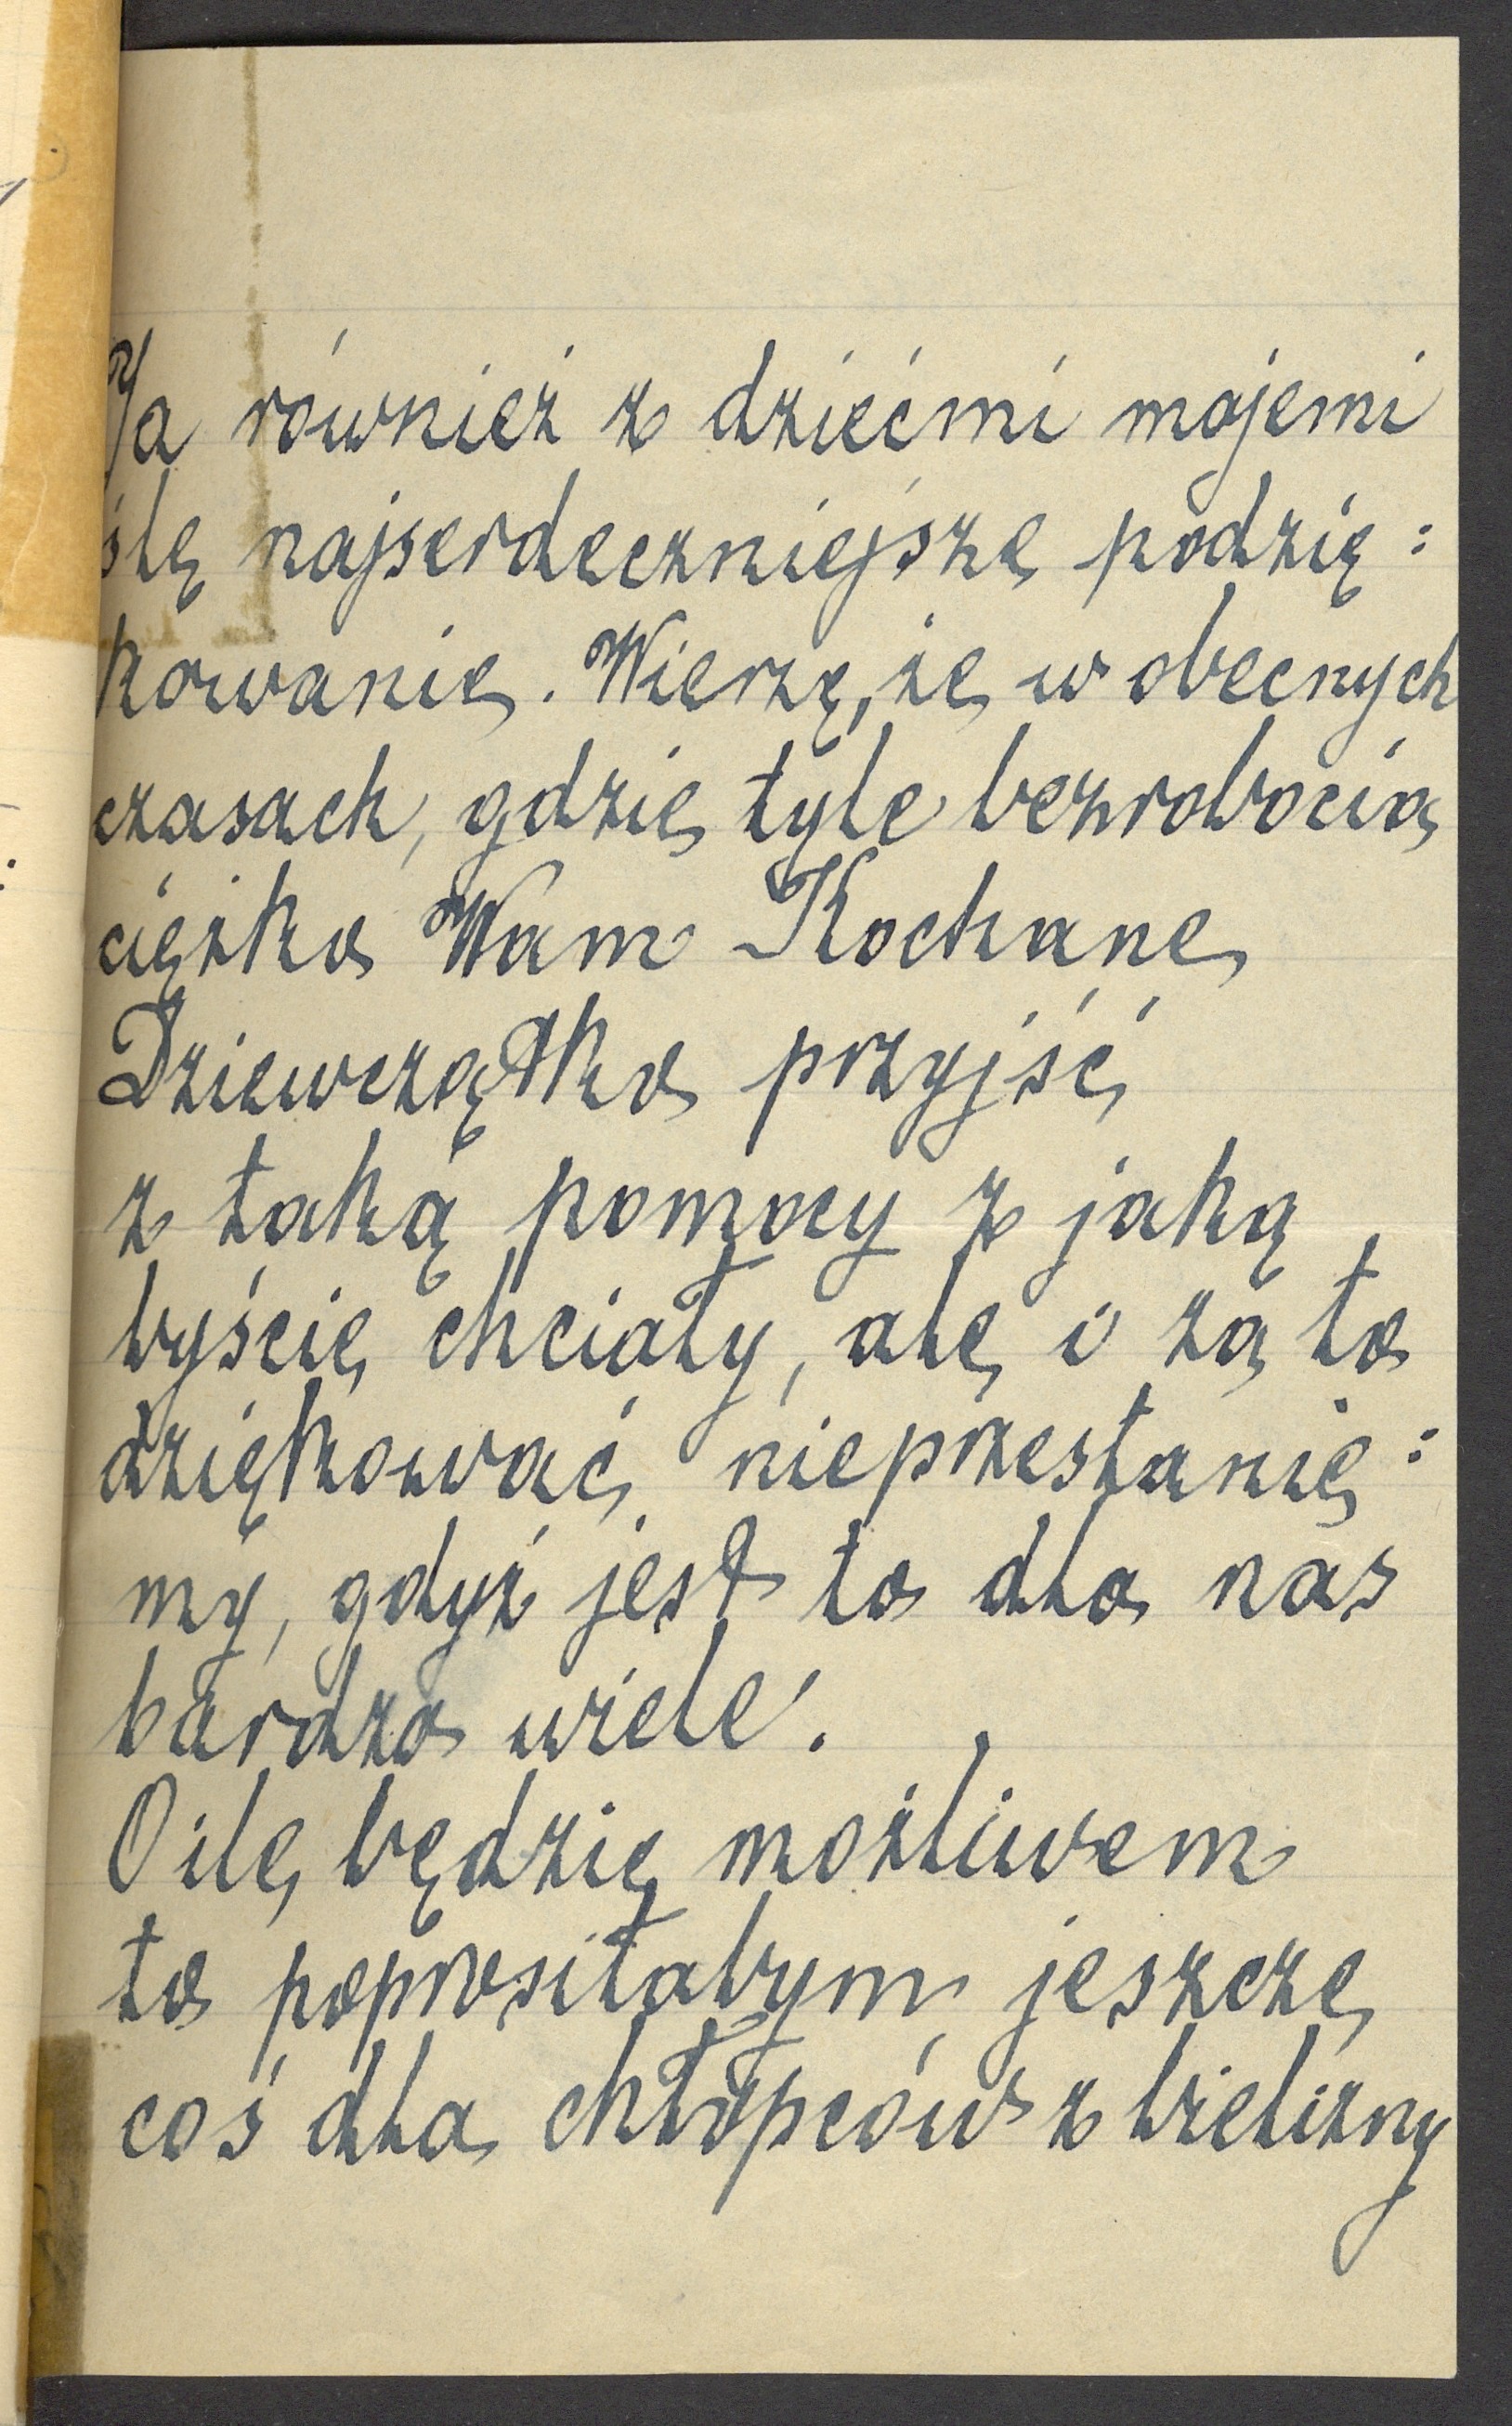 Ja również z dziećmi mojemi
ślę najserdeczniejsze podzię:
kowanie. Wierzę, że w obecnych
czasach, gdzie tyle bezrobocia
ciężko Wam Kochane
Dziewczątka przyjść
z taką pomocy z jaką
byście chciały, ale i za to
dziękować nieprzestanie:
my, gdyż jest to dla nas
bardzo wiele.
O ile będzie możliwem
to poprosiłabym jeszcze
coś dla chłopców z bielizny